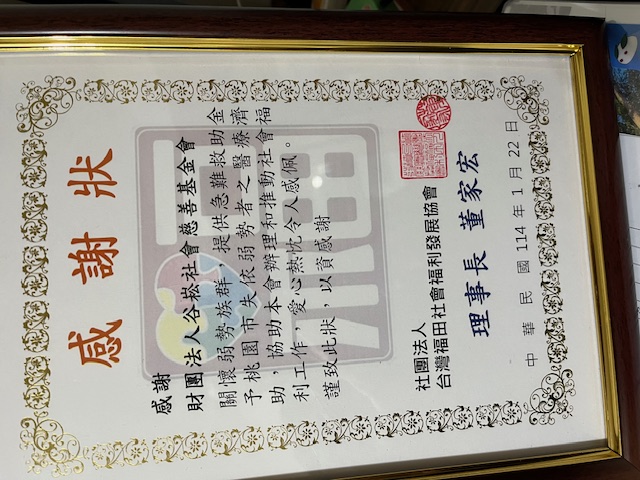 感謝狀
感謝
財團法人谷崧社會慈善基金會
關懷弱勢族群，提供急難救助金
予桃園市失依弱勢者之醫療濟
助，協助本會辦理和推動社會福
利工作，愛心熱忱令人感佩。
謹致此狀，以資感謝
社團法人
台灣福田社會福利發展協會
理事長 董家宏
中華民國114年1月22日